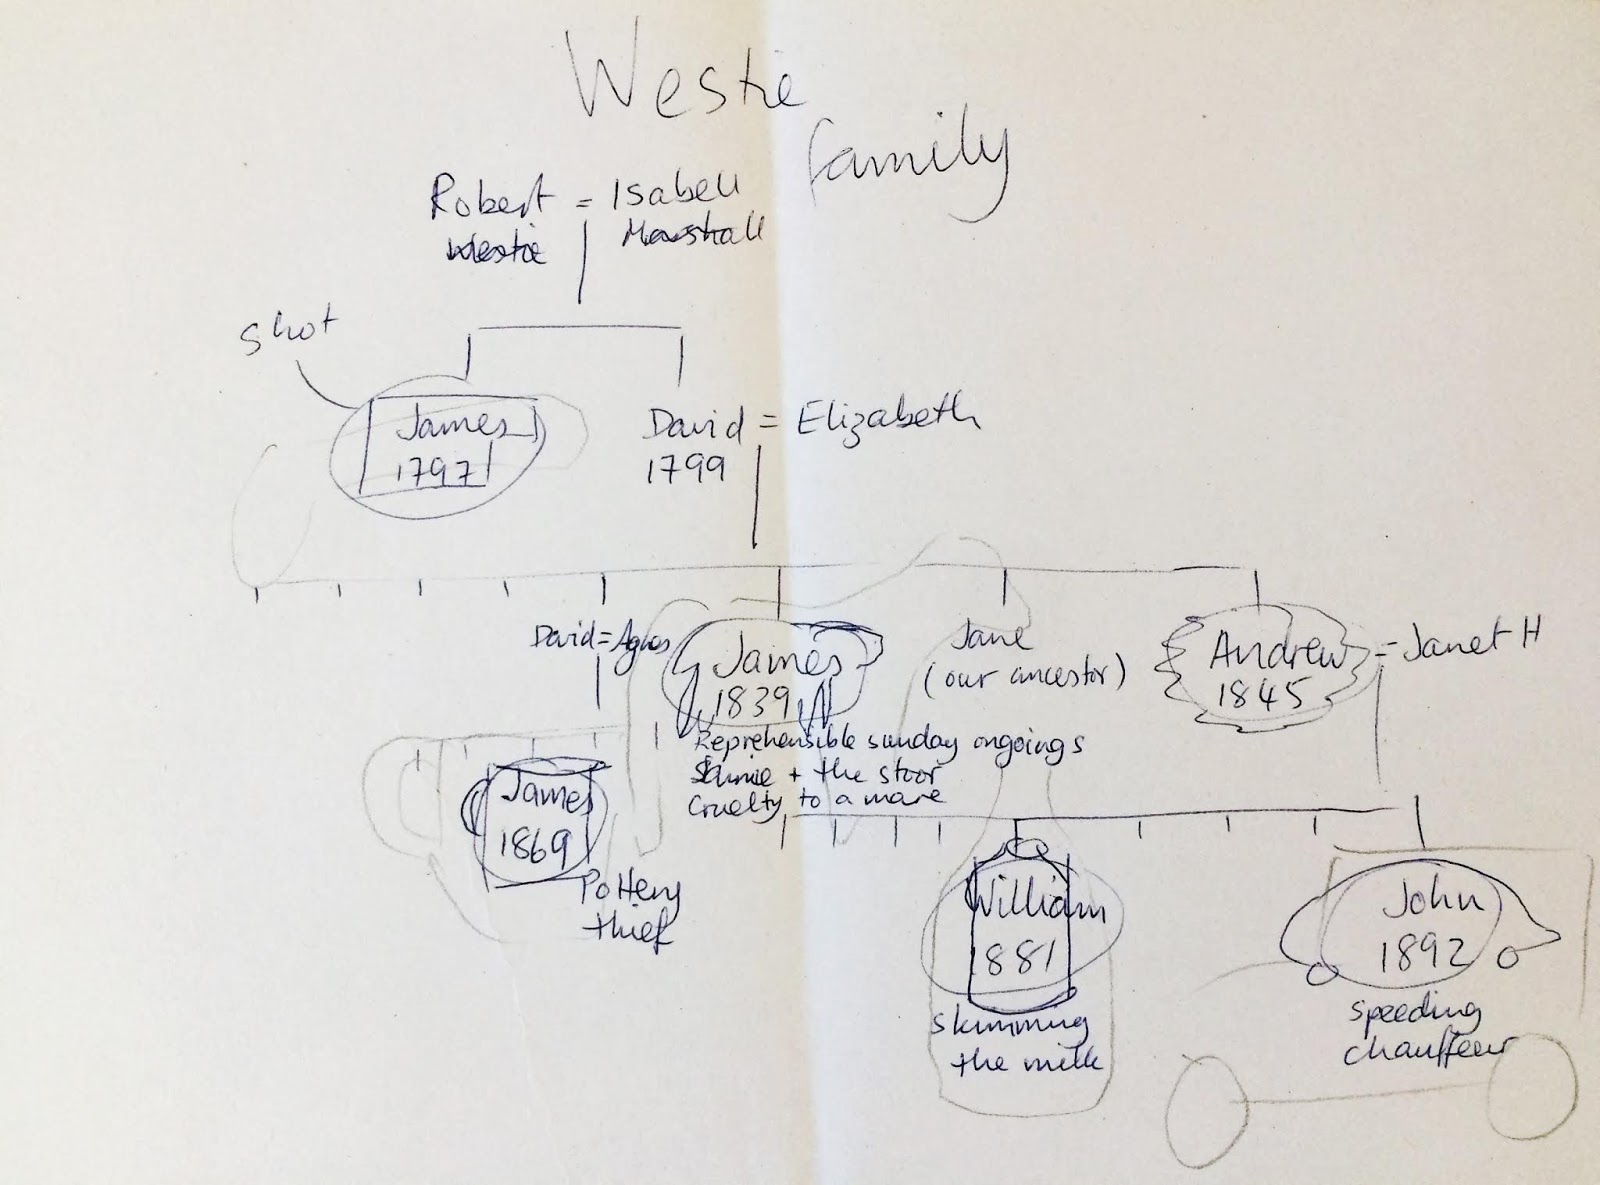 Westie
family
Robert = Isabell
Westie Marshall
Shot
James
1797
David = Elizabeth
1799
David = Agnes
James
1839
Jane
(our ancestor)
Andrew = Janet H
1845
Reprehensible sunday ongoings
+ the stoor
Cruelty to a mare
James
1869
Pottery
thief
William
1881
skimming
the milk
John
1892
speeding
chauffeur